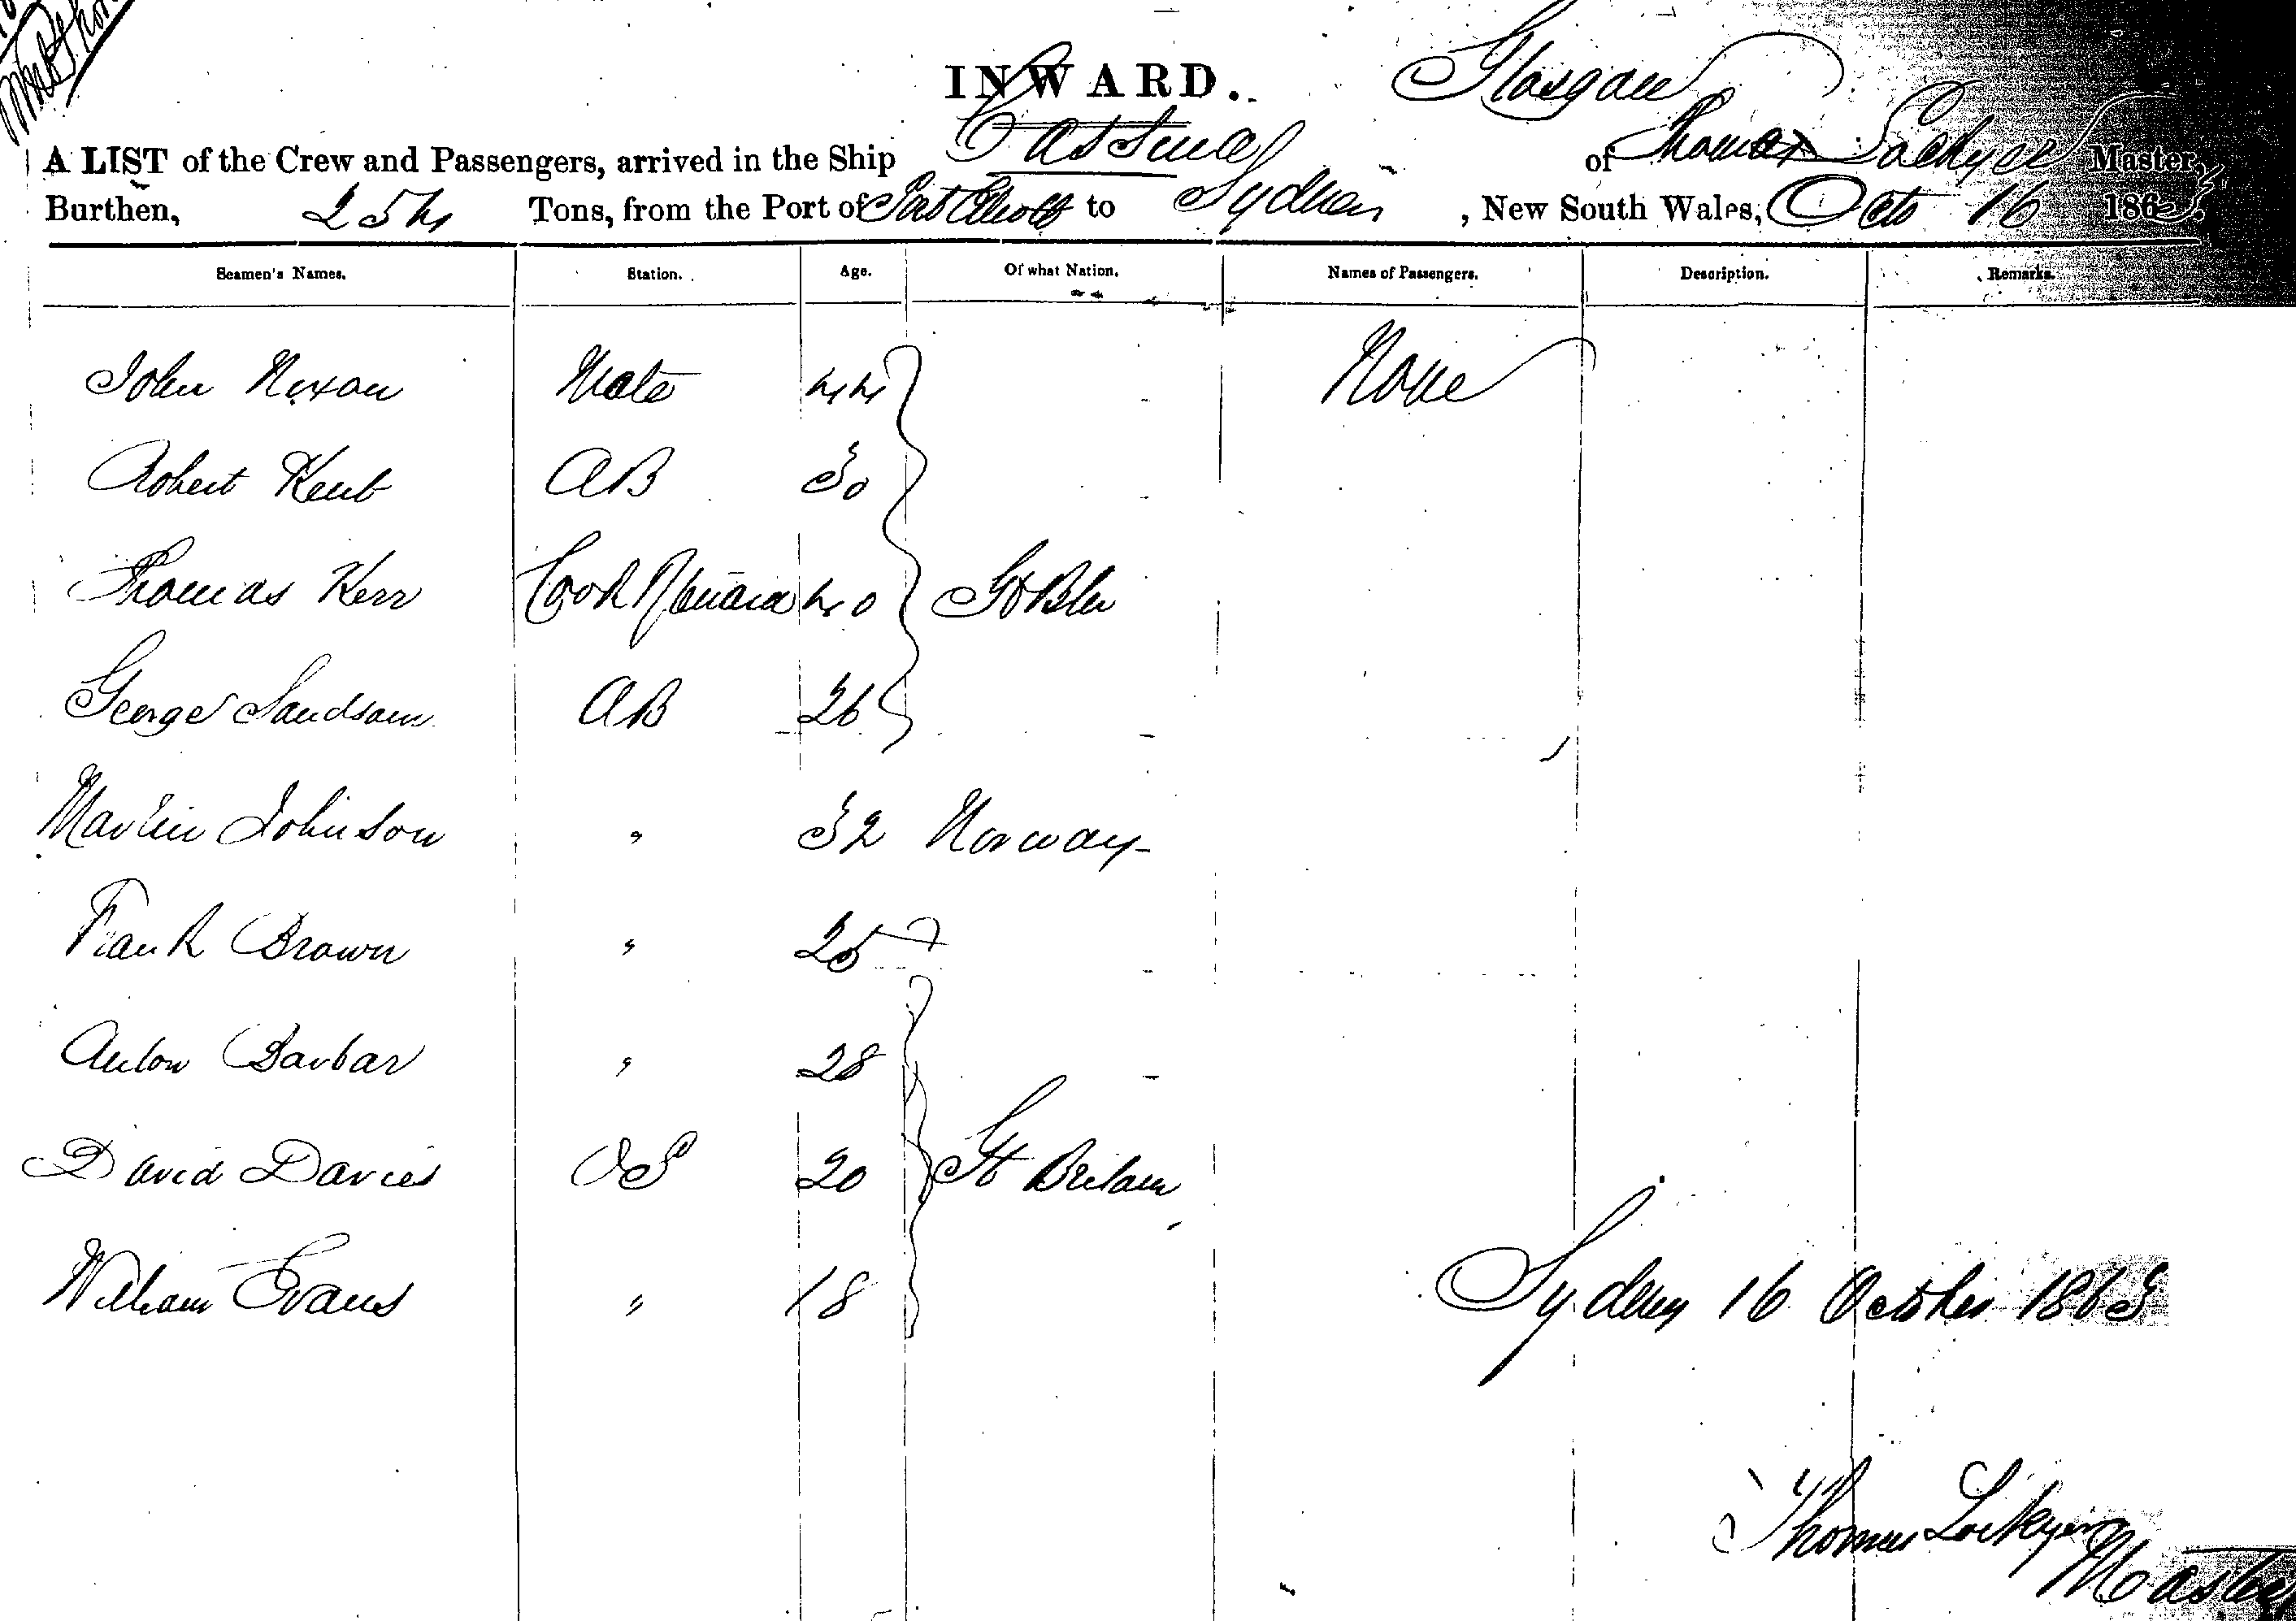 INWARD. Glasgow
A LIST of the Crew and Passengers, arrived in the Ship of Thomas Lockyer Master,
Burthen, 254 Tons, from the Port of Port Elliott to Sydney, New South Wales, Octo 16 1863
Seamen's Names. Station. Age. Of what Nation. Names of Passengers. Description. Remarks.
John Nixon Mate 44 None
Robert Kent AB 30
Thomas Kerr Cook & 40 Gt Bln
George Sandsom AB 26
Martin Johnson " 32 Norway
Frank Brown " 25
Anton Barbar " 28
David Davies OS 20 Gt Britain
William Evans " 18
Sydney 16 October 1863
Thomas Lockyer
Master